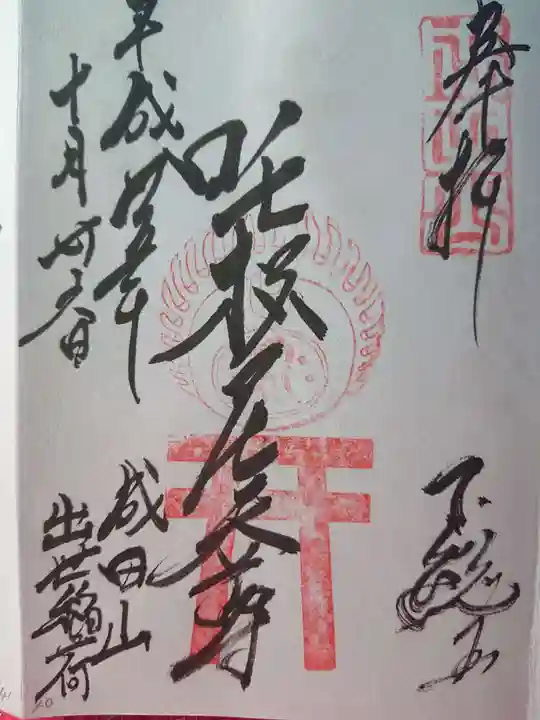 奉拝
下総
吒枳尼天尊
成田山
出世稲荷
平成廿五年
十月
日
40
41